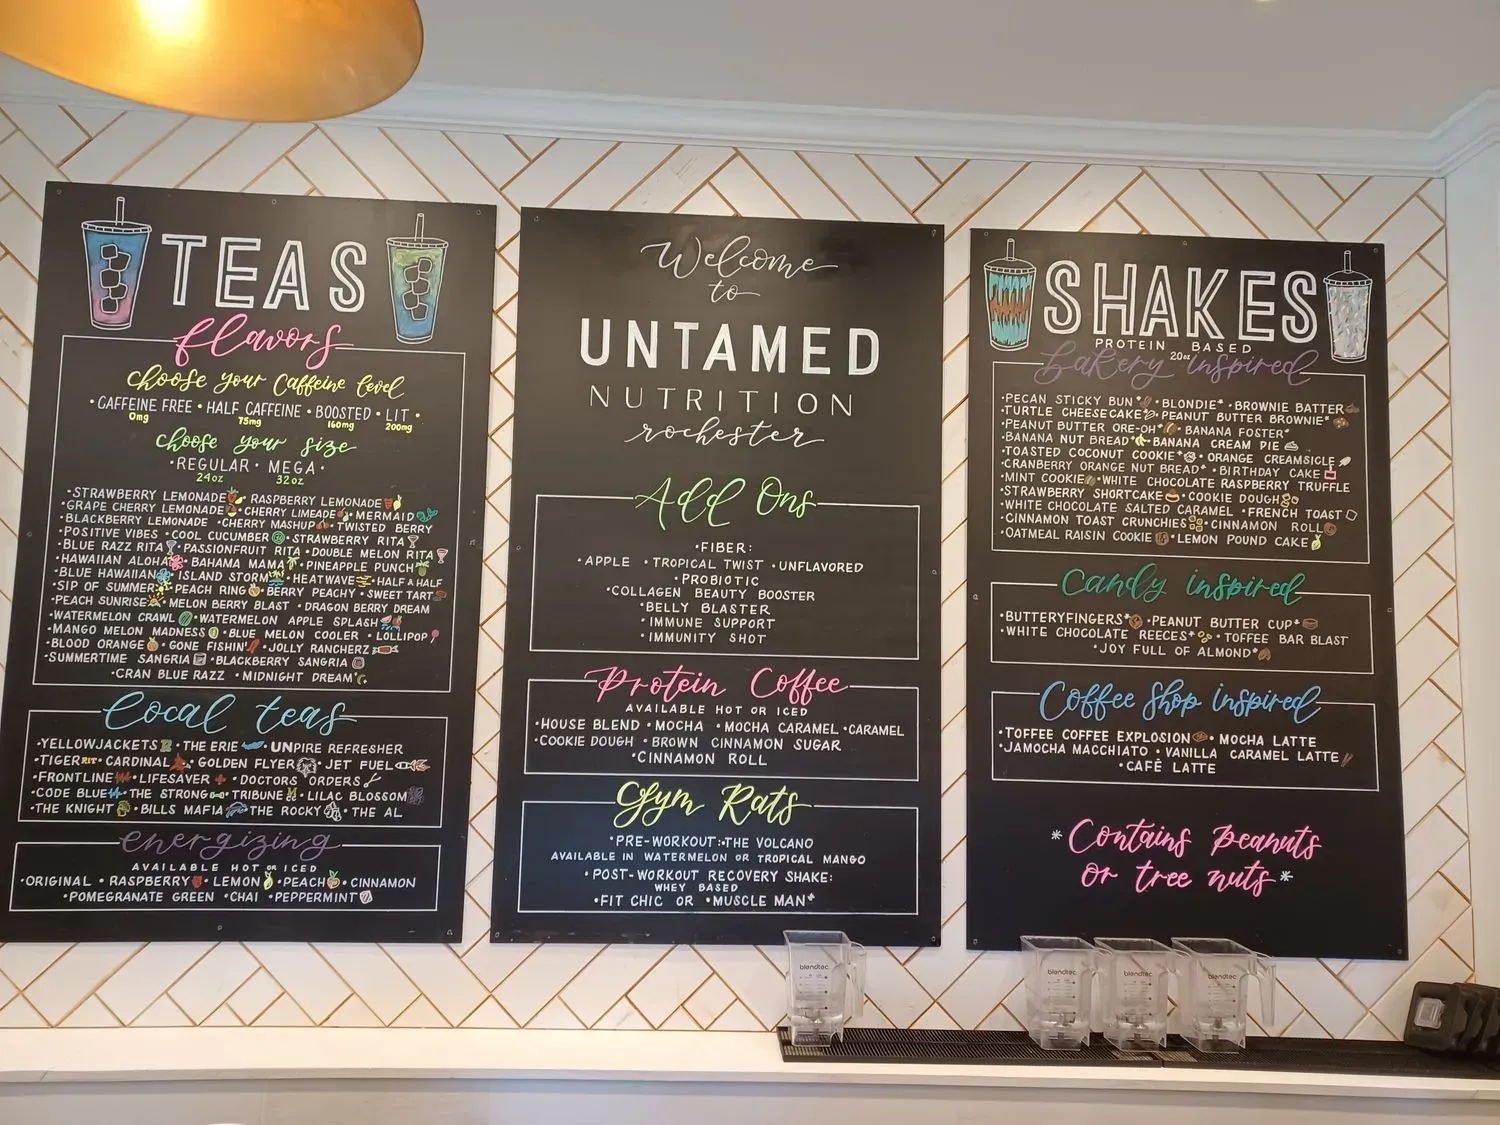 TEAS
flavors
choose your Caffeine level
• CAFFEINE FREE • HALF CAFFEINE • BOOSTED • LIT •
0mg 75mg 160mg 200mg
choose your size
• REGULAR • MEGA •
24oz 32oz
• STRAWBERRY LEMONADE • RASPBERRY LEMONADE
• GRAPE CHERRY LEMONADE • CHERRY LIMEADE • MERMAID
• BLACKBERRY LEMONADE • CHERRY MASHUP • TWISTED BERRY
• POSITIVE VIBES • COOL CUCUMBER • STRAWBERRY RITA
• BLUE RAZZ RITA • PASSIONFRUIT RITA • DOUBLE MELON RITA
• HAWAIIAN ALOHA • BAHAMA MAMA • PINEAPPLE PUNCH
• BLUE HAWAIIAN • ISLAND STORM • HEATWAVE • HALF & HALF
• SIP OF SUMMER • PEACH RING • BERRY PEACHY • SWEET TART
• PEACH SUNRISE • MELON BERRY BLAST • DRAGON BERRY DREAM
• WATERMELON CRAWL • WATERMELON APPLE SPLASH
• MANGO MELON MADNESS • BLUE MELON COOLER • LOLLIPOP
• BLOOD ORANGE • GONE FISHIN' • JOLLY RANCHERZ
• SUMMERTIME SANGRIA • BLACKBERRY SANGRIA
• CRAN BLUE RAZZ • MIDNIGHT DREAM
local teas
• YELLOWJACKETS • THE ERIE • UNPIRE REFRESHER
• TIGER RIT • CARDINAL • GOLDEN FLYER • JET FUEL
• FRONTLINE • LIFESAVER • DOCTORS ORDERS
• CODE BLUE • THE STRONG • TRIBUNE • LILAC BLOSSOM
• THE KNIGHT • BILLS MAFIA • THE ROCKY • THE AL
energizing
AVAILABLE HOT OR ICED
• ORIGINAL • RASPBERRY • LEMON • PEACH • CINNAMON
• POMEGRANATE GREEN • CHAI • PEPPERMINT
Welcome
to
UNTAMED
NUTRITION
rochester
Add Ons
• FIBER:
• APPLE • TROPICAL TWIST • UNFLAVORED
• PROBIOTIC
• COLLAGEN BEAUTY BOOSTER
• BELLY BLASTER
• IMMUNE SUPPORT
• IMMUNITY SHOT
Protein Coffee
AVAILABLE HOT OR ICED
• HOUSE BLEND • MOCHA • MOCHA CARAMEL • CARAMEL
• COOKIE DOUGH • BROWN CINNAMON SUGAR
• CINNAMON ROLL
Gym Rats
• PRE-WORKOUT: • THE VOLCANO
AVAILABLE IN WATERMELON OR TROPICAL MANGO
• POST-WORKOUT RECOVERY SHAKE:
WHEY BASED
• FIT CHIC OR • MUSCLE MAN*
SHAKES
PROTEIN BASED
20oz
bakery inspired
• PECAN STICKY BUN* • BLONDIE* • BROWNIE BATTER
• TURTLE CHEESECAKE • PEANUT BUTTER BROWNIE*
• PEANUT BUTTER ORE-OH* • BANANA FOSTER*
• BANANA NUT BREAD* • BANANA CREAM PIE
• TOASTED COCONUT COOKIE* • ORANGE CREAMSICLE
• CRANBERRY ORANGE NUT BREAD* • BIRTHDAY CAKE
• MINT COOKIE • WHITE CHOCOLATE RASPBERRY TRUFFLE
• STRAWBERRY SHORTCAKE • COOKIE DOUGH
• WHITE CHOCOLATE SALTED CARAMEL • FRENCH TOAST
• CINNAMON TOAST CRUNCHIES • CINNAMON ROLL
• OATMEAL RAISIN COOKIE • LEMON POUND CAKE
Candy inspired
• BUTTERYFINGERS* • PEANUT BUTTER CUP*
• WHITE CHOCOLATE REECES* • TOFFEE BAR BLAST
• JOY FULL OF ALMOND*
Coffee Shop inspired
• TOFFEE COFFEE EXPLOSION • MOCHA LATTE
• JAMOCHA MACCHIATO • VANILLA CARAMEL LATTE
• CAFÉ LATTE
*Contains peanuts
or tree nuts*
blendtec
blendtec
blendtec
blendtec